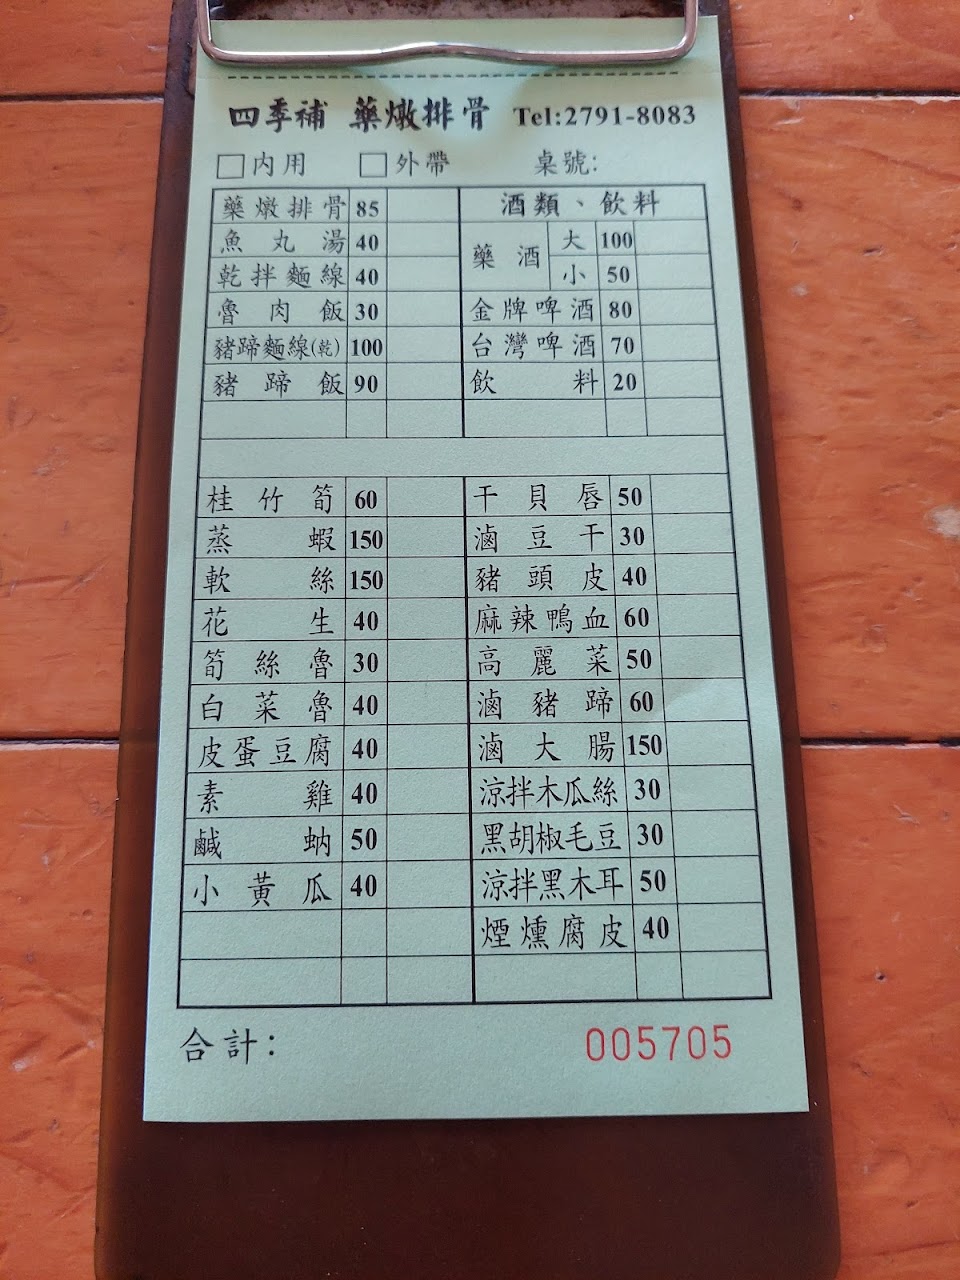 四季補 藥燉排骨 Tel:2791-8083
□內用 □外帶 桌號:
藥燉排骨 85 酒類、飲料
魚丸湯 40 藥酒 大 100
乾拌麵線 40 小 50
魯肉飯 30 金牌啤酒 80
豬蹄麵線(乾) 100 台灣啤酒 70
豬蹄飯 90 飲料 20
桂竹筍 60 干貝唇 50
蒸蝦 150 滷豆干 30
軟絲 150 豬頭皮 40
花生 40 麻辣鴨血 60
筍絲魯 30 高麗菜 50
白菜魯 40 滷豬蹄 60
皮蛋豆腐 40 滷大腸 150
素雞 40 涼拌木瓜絲 30
鹹蚋 50 黑胡椒毛豆 30
小黃瓜 40 涼拌黑木耳 50
煙燻腐皮 40
合計: 005705